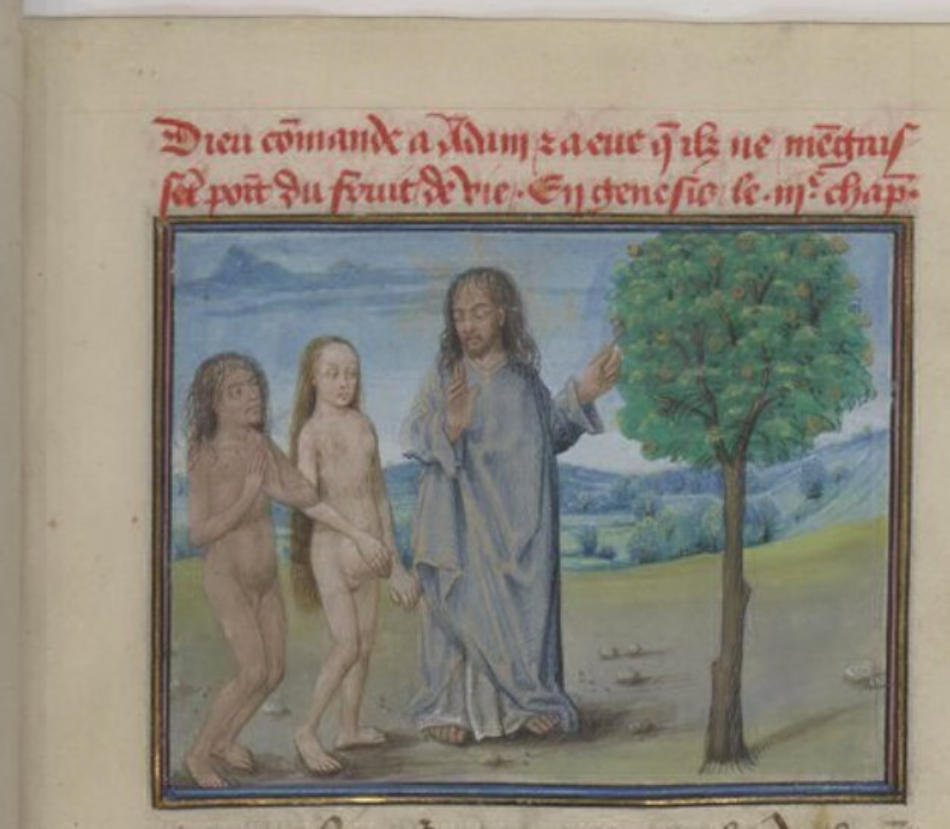 Dieu cōmande a Adam ⁊ a eue q̄ ilz ne mēgaiſ
ſēt poīt du fruit de vie. En geneſis le .iijᵉ. chap̄.